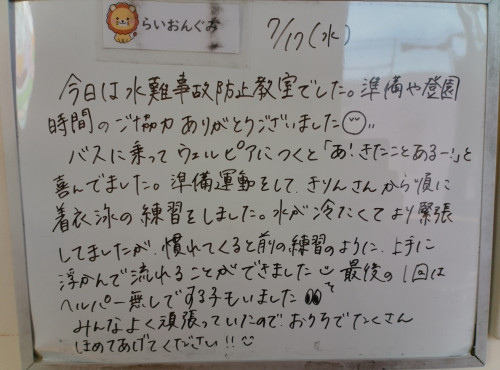 らいおんぐみ
7/17(水)
今日は水難事故防止教室でした。準備や登園
時間のご協力ありがとうございました
バスに乗ってウェルピアにつくと「あ!きたことあるー!」と
喜んでました。準備運動をして、きりんさんから順に
着衣泳の練習をしました。水が冷たくてより緊張
してましたが、慣れてくると前の練習のように、上手に
浮かんで流れることができました 最後の1回は
ヘルパー無しでする子もいました
みんなよく頑張っていたので おうちでたくさん
ほめてあげてください!!